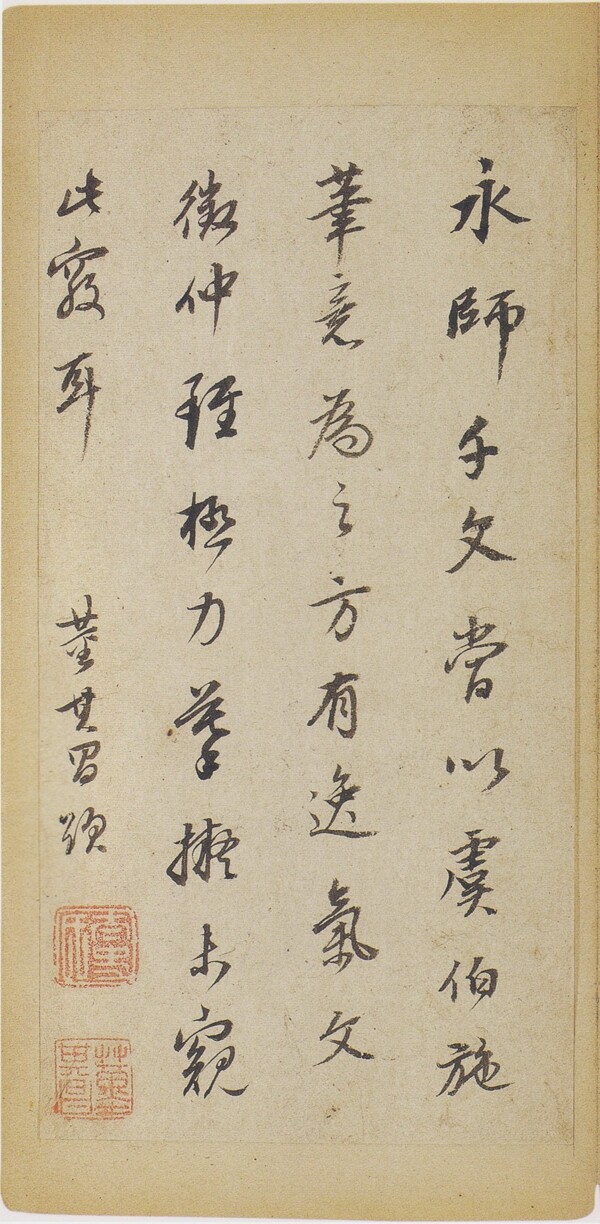 永師千文嘗以虞伯施
筆意為之方有逸氣文
徵仲雖極力摹擬未窺
此竅耳
董其昌題